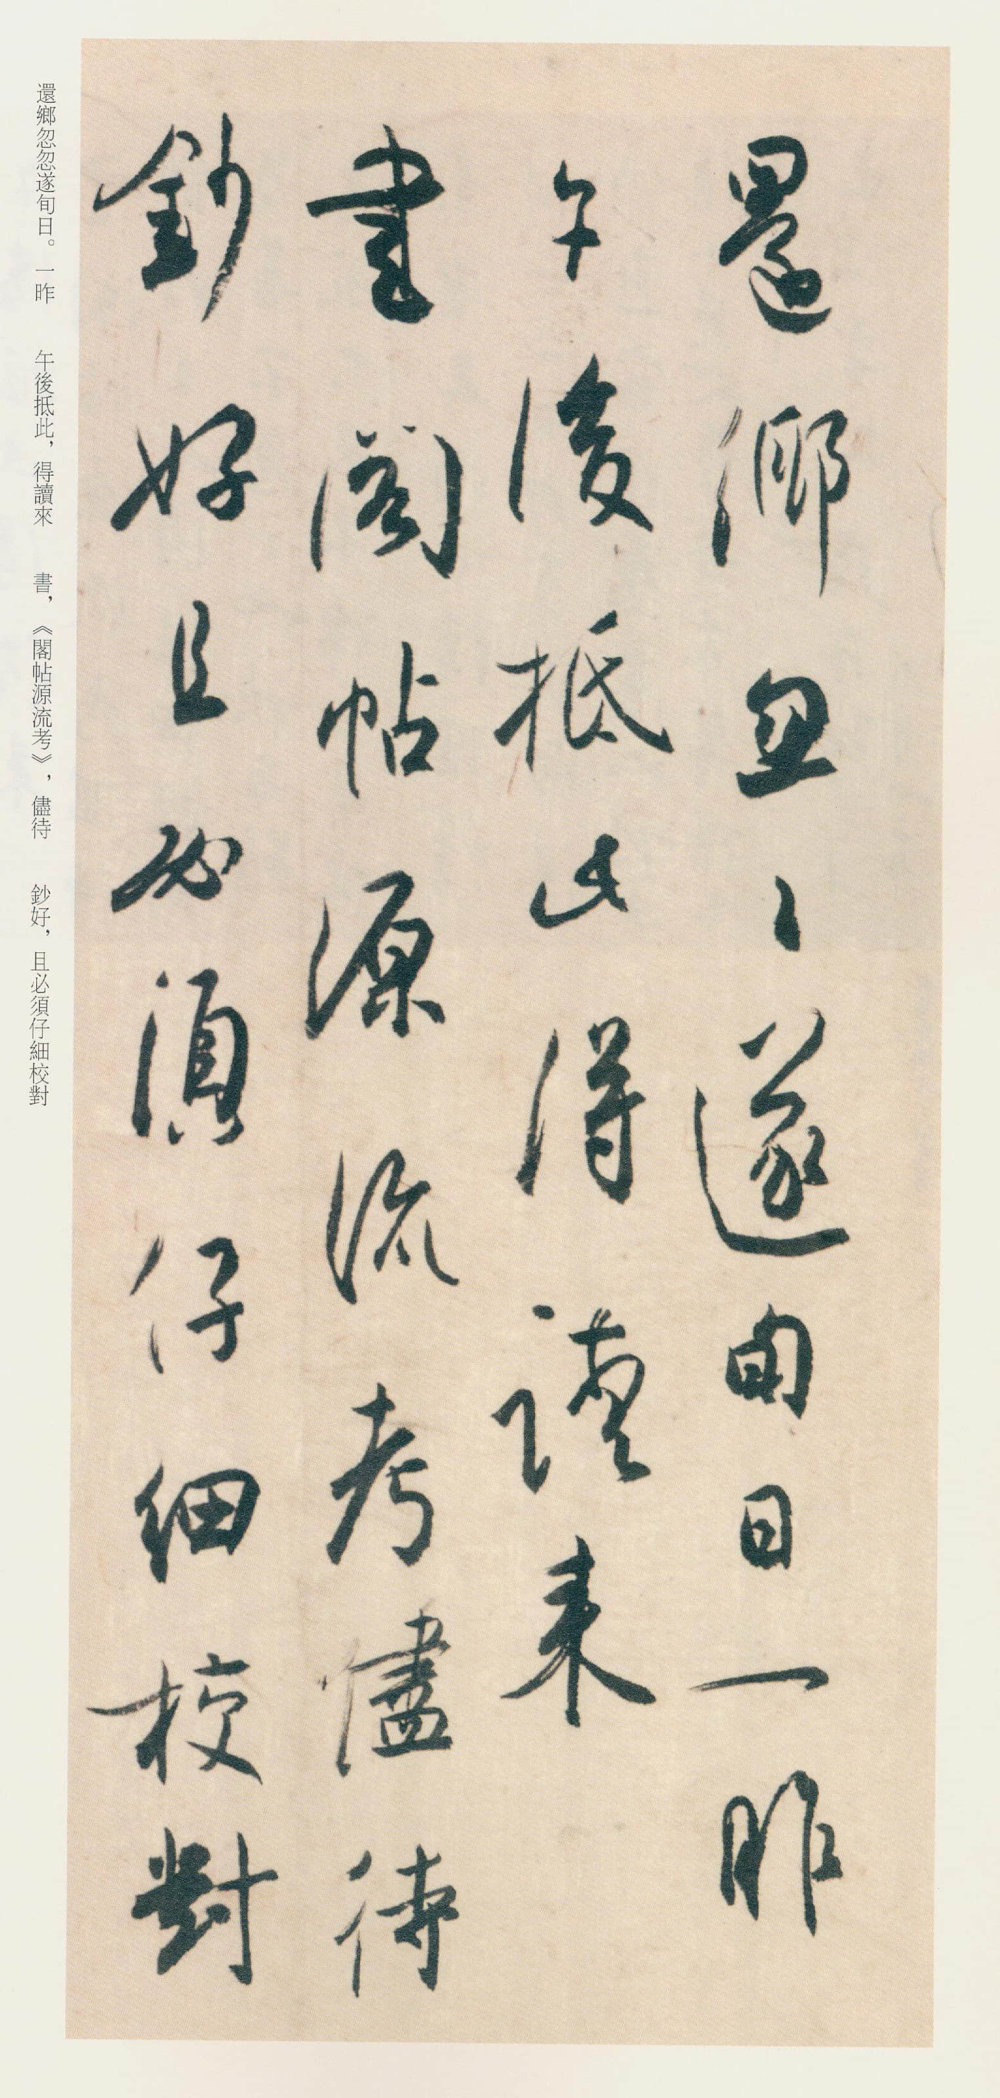 還鄉忽〻遂旬日一昨
午後抵此得讀來
書閣帖源流考儘待
鈔好且必須仔細校對
還鄉忽忽遂旬日。一昨　午後抵此，得讀來　書，《閣帖源流考》，儘待　鈔好，且必須仔細校對